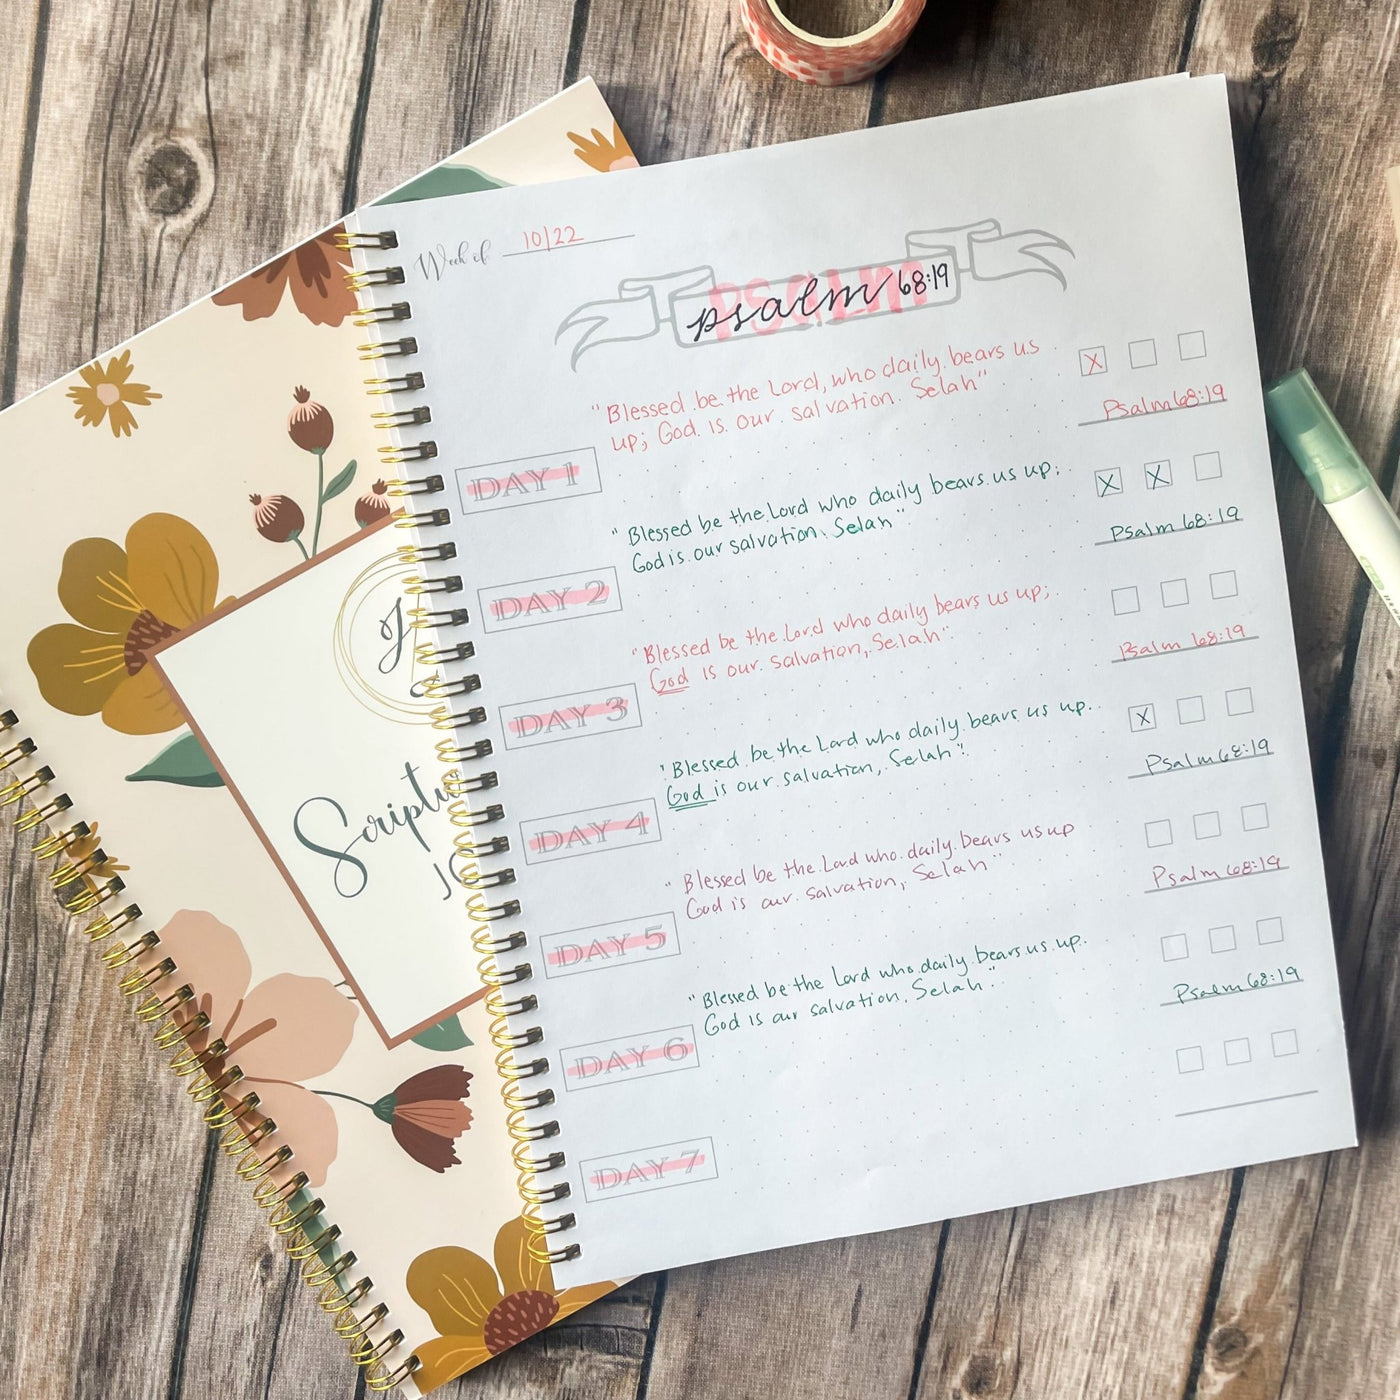 Week of: 10/22
psalm 68:19
PSALM
"Blessed be the Lord, who daily bears us
up; God is our salvation. Selah"
Psalm 68:19
DAY 1
"Blessed be the Lord who daily bears us up;
God is our salvation, Selah"
Psalm 68:19
DAY 2
"Blessed be the Lord who daily bears us up;
God is our salvation, Selah"
Psalm 68:19
DAY 3
"Blessed be the Lord who daily bears us up.
God is our salvation, Selah"
Psalm 68:19
DAY 4
"Blessed be the Lord who daily bears us up
God is our salvation, Selah"
Psalm 68:19
DAY 5
"Blessed be the Lord who daily bears us up.
God is our salvation, Selah"
Psalm 68:19
DAY 6
DAY 7